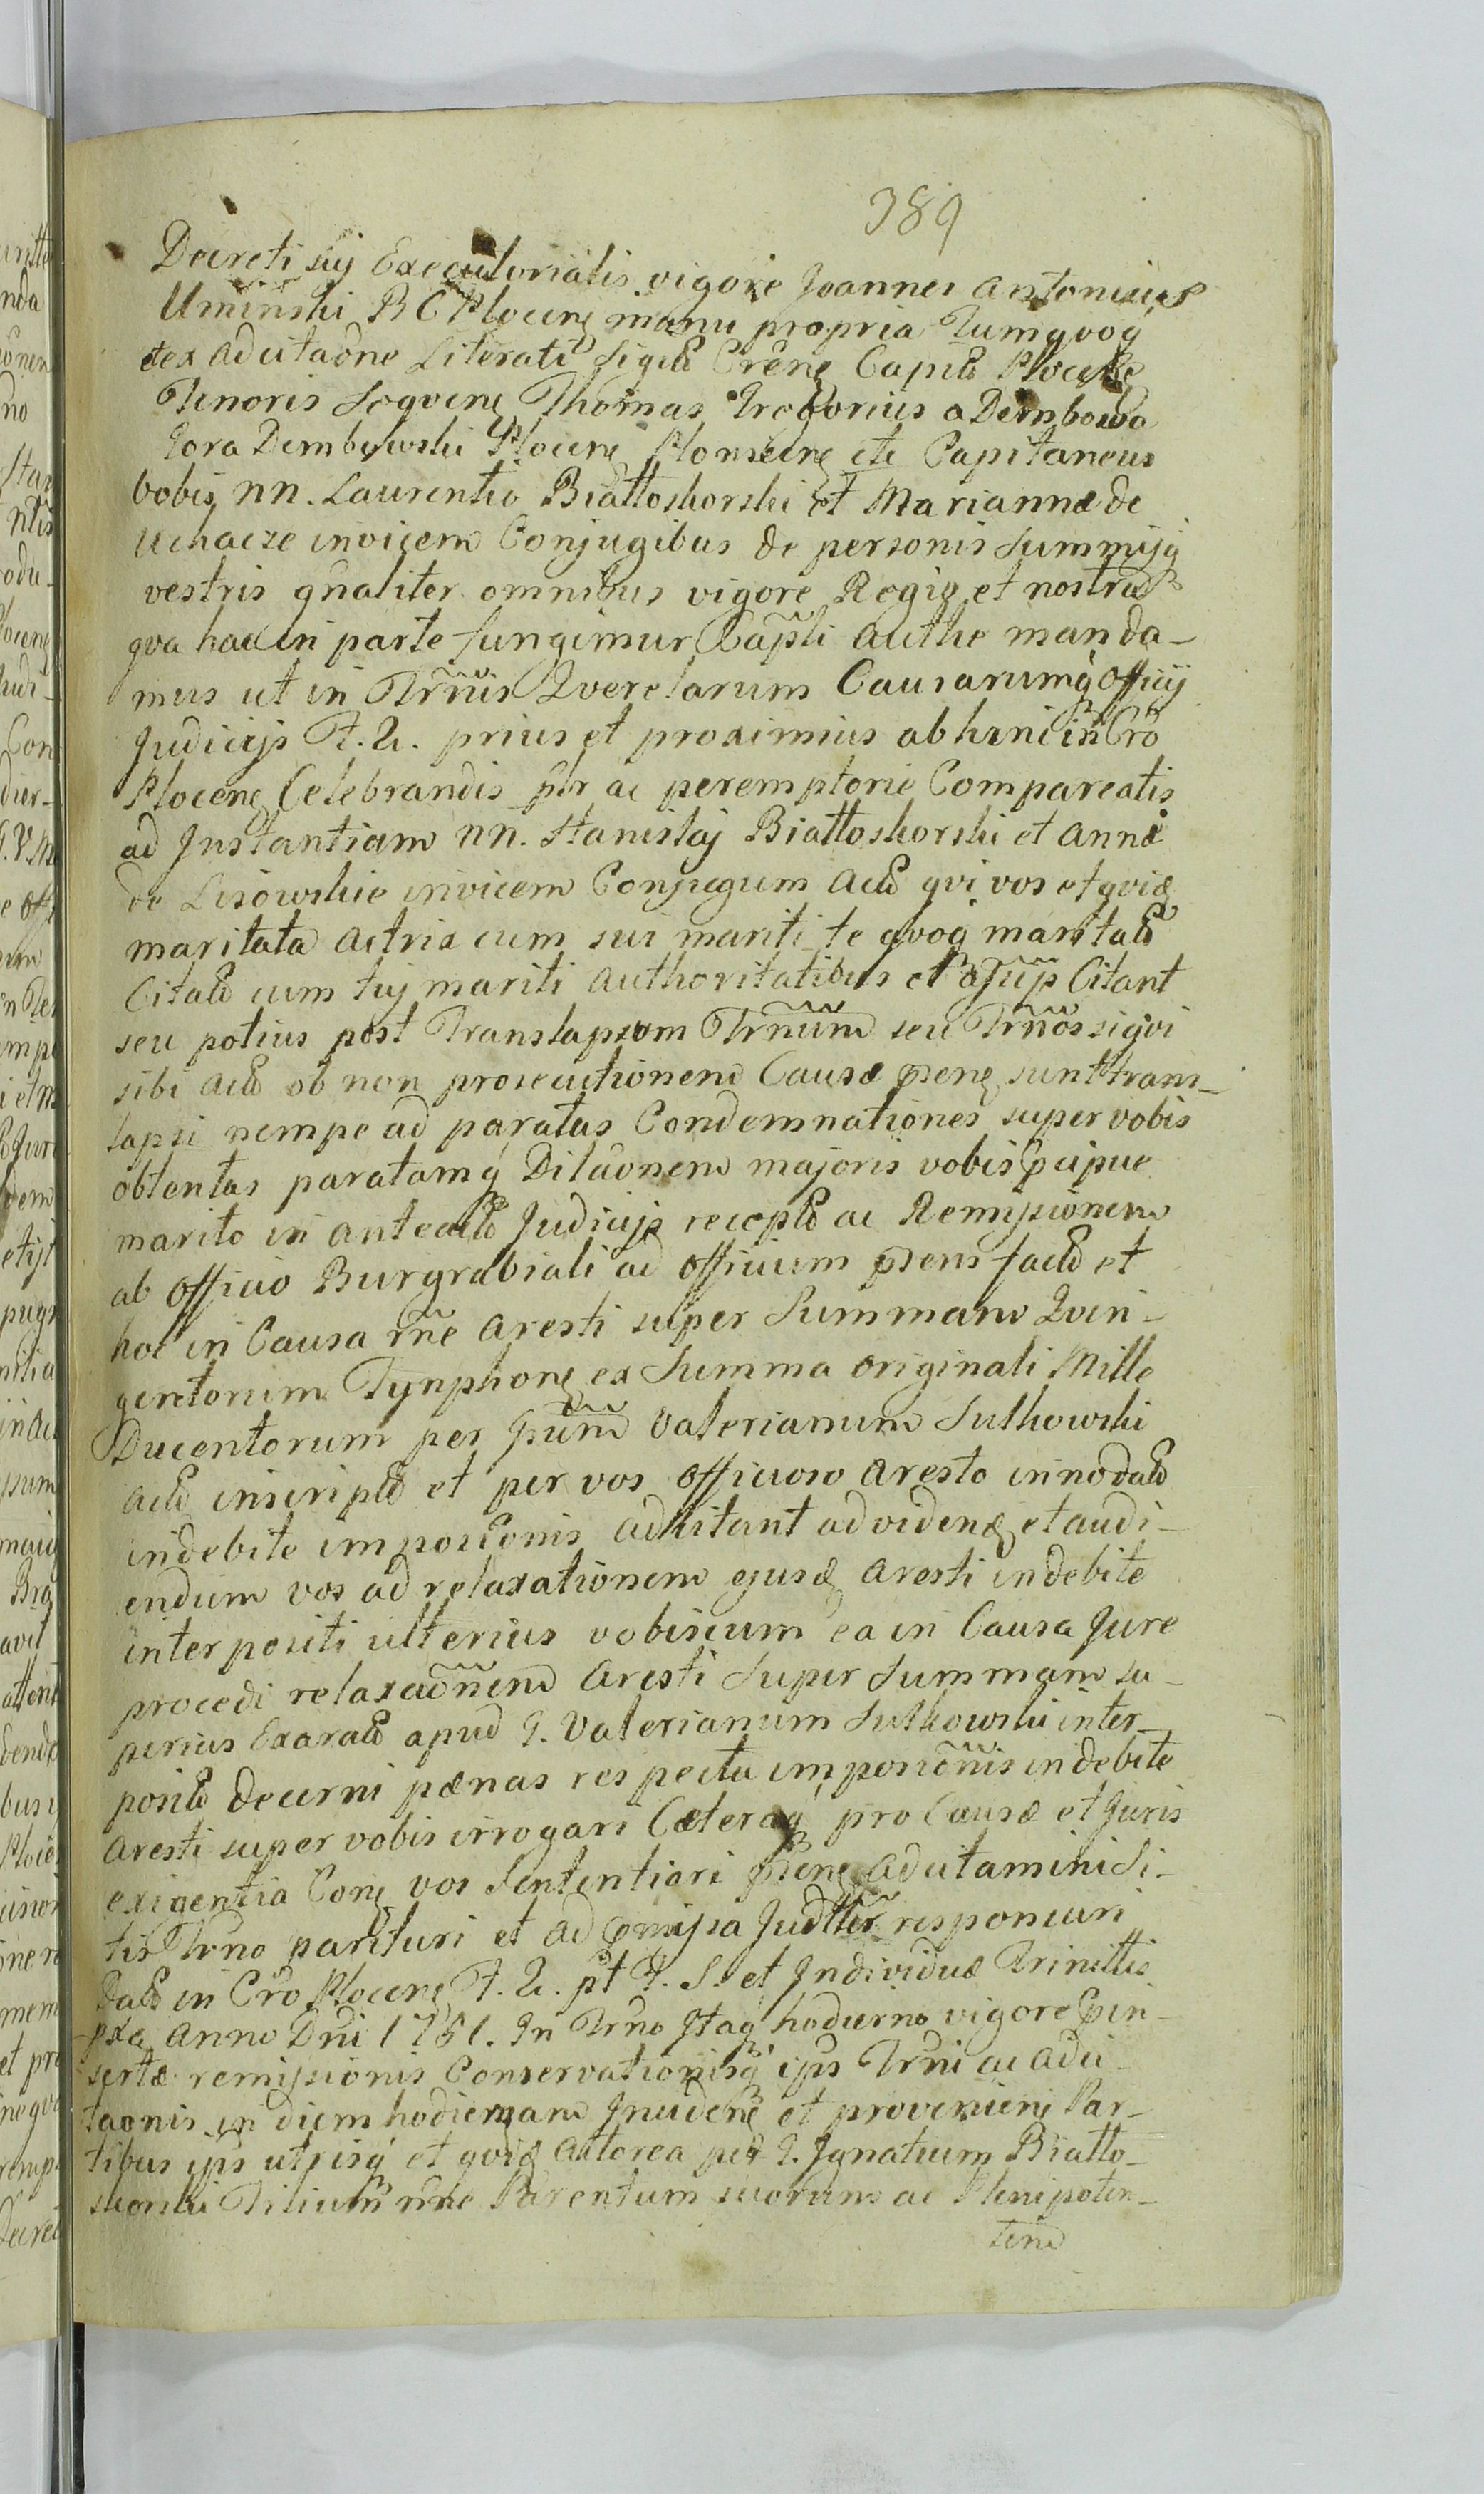 389
Decreti sui Executorialis vigore Joannes Antonius
Uminski B C Plocens manu propria Tumqvoq
et ex Adcitaone Literatt Sigill Crens Capitl Plocens
Tenoris Seqvens Thomas Gregorius a Dembowa
Gora Dembowski Plocens Plonscens etc Capitaneus
Vobis nn. Laurentio Białłoskorski et Mariannæ de
Uchacze invicem Conjugibus de personis Summisq
vestris gnaliter omnibus vigore Regia et nostra
qva hac in parte fungimur Capli Authe manda-
mus ut in Trnis Qverelarum Causarumq Officij
Judicijs F. A. prius et proximius ab hinc in Cro
Plocens Celebrandis plr ac peremptorie Compareatis
ad Instantiam nn. Stanislaj Białłoskorski et Annæ
de Lisowskie invicem Conjugum Act qvi vos et qvid
maritata Actrix cum sui mariti te qvoq marital
Citat cum tuj mariti Authoritatibus et assijs Citant
seu potius post Translapsum Trnum seu Trnos siqvi
sibi Act ob non prosecutionem Causæ psens sunt trans-
lapsi nempe ad paratas Condemnationes super vobis
obtentas paratamq Dilaonem majoris vobis pcipue
marito in anteact Judicijs recept ac Remissionem
ab Officio Burgrabiali ad officium psens fact et
hoc in Causa rne Aresti super Summam Qvin-
gentorum Tynphons ex Summa originali Mille
Ducentorum per Gsum Valerianum Sutkowski
Act inscript et per vos officioso Aresto innodat
indebite imposionis Adcitant ad vidend et audi-
endum vos ad relaxationem ejusd Aresti indebite
interpositi ulterius vobiscum ea in Causa Jure
procedi relaxaonem Aresti Super Summam su-
perius Exarat apud G. Valerianum Sutkowski inter-
posit decerni pænas respectu imposionis indebite
Aresti super vobis irrogari Cæteraq pro Causæ et Juris
exigentia Cons vos Sententiari psens Adcitamini Si-
tis Trno parituri et ad pmissa Judltter responsuri
Dat in Cro Plocens F. A. pt F. S. et Individuæ Trinittis
pxa Anno Dni 1751. In Trno Itaq hodierno vigore pin-
sertæ remissionis Conservationisq ips Trni ac Adci-
taonis in diem hodiernam Incidens et proveniens Par-
tibus ips utrisq et qvid Actorea per G. Ignatium Białło-
skorski Filium nne Parentum suorum ac Plenipoten-
tem